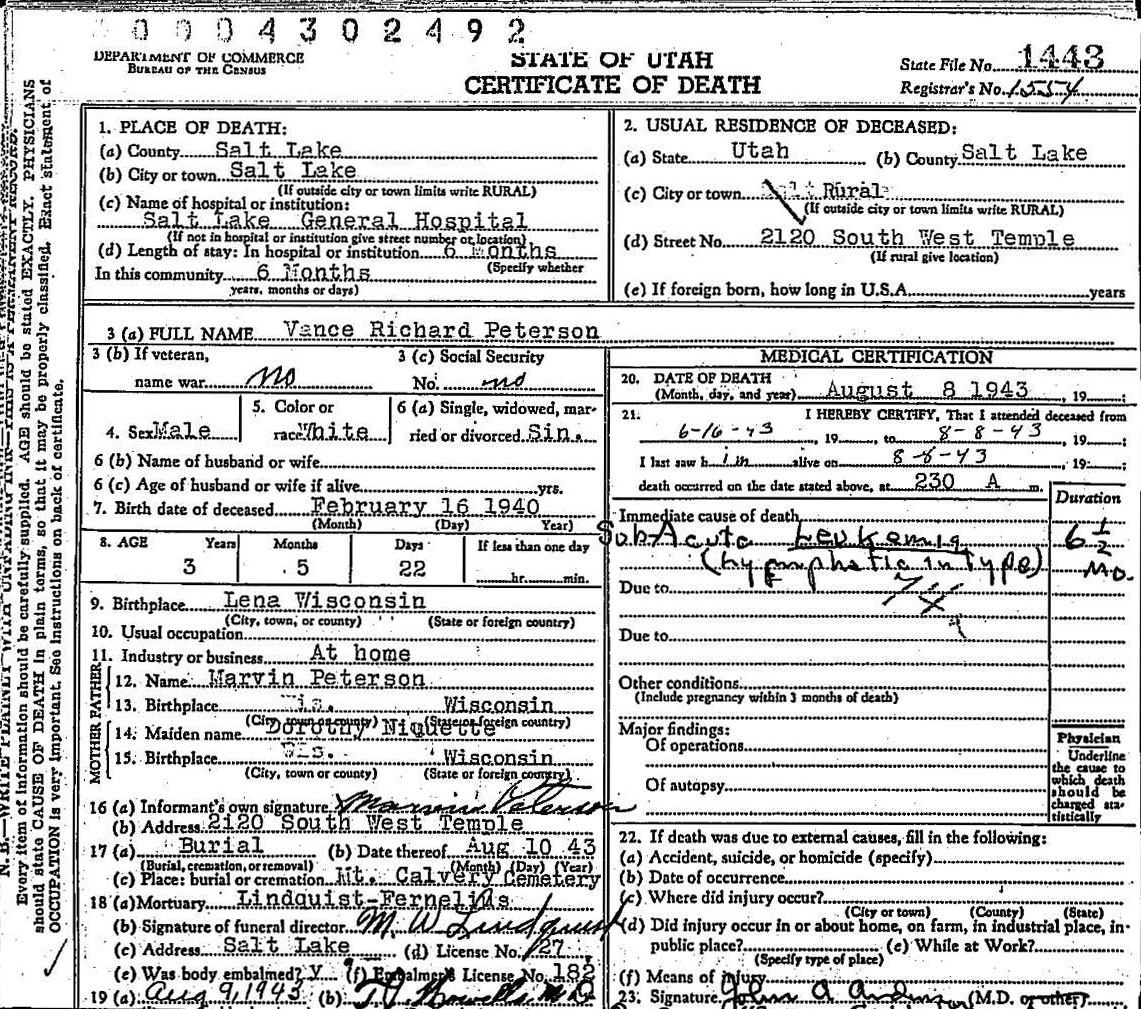 0004302492
DEPARTMENT OF COMMERCE
BUREAU OF THE CENSUS
STATE OF UTAH
CERTIFICATE OF DEATH
State File No. 1443
Registrar's No. 1554
N. B.—WRITE PLAINLY WITH UNFADING INK—THIS IS A PERMANENT RECORD.
Every item of information should be carefully supplied. AGE should be stated EXACTLY. PHYSICIANS
should state CAUSE OF DEATH in plain terms, so that it may be properly classified. Exact statement of
OCCUPATION is very important. See instructions on back of certificate.
1. PLACE OF DEATH:
(a) County Salt Lake
(b) City or town Salt Lake
(If outside city or town limits write RURAL)
(c) Name of hospital or institution:
Salt Lake General Hospital
(If not in hospital or institution give street number or location)
(d) Length of stay: In hospital or institution 6 Months
(Specify whether
In this community 6 Months
years, months or days)
2. USUAL RESIDENCE OF DECEASED:
(a) State Utah (b) County Salt Lake
(c) City or town Salt Rural
(If outside city or town limits write RURAL)
(d) Street No. 2120 South West Temple
(If rural give location)
(e) If foreign born, how long in U.S.A. years
3 (a) FULL NAME Vance Richard Peterson
3 (b) If veteran,
name war no
3 (c) Social Security
No. no
4. Sex Male
5. Color or
race White
6 (a) Single, widowed, mar-
ried or divorced Sin.
6 (b) Name of husband or wife
6 (c) Age of husband or wife if alive yrs.
7. Birth date of deceased February 16 1940
(Month) (Day) Year)
8. AGE Years Months Days If less than one day
3 5 22 hr. min.
9. Birthplace Lena Wisconsin
(City, town, or county) (State or foreign country)
10. Usual occupation
11. Industry or business At home
FATHER
12. Name Marvin Peterson
13. Birthplace Wis. Wisconsin
(City, town or county) (State or foreign country)
MOTHER
14. Maiden name Dorothy Niquette
15. Birthplace Wis. Wisconsin
(City, town or county) (State or foreign country)
16 (a) Informant's own signature Marvin Peterson
(b) Address 2120 South West Temple
17 (a) Burial (b) Date thereof Aug 10 43
(Burial, cremation, or removal) (Month) (Day) (Year)
(c) Place: burial or cremation Mt. Calvery Cemetery
18 (a) Mortuary Lindquist-Fernelius
(b) Signature of funeral director M. W. Lindquist
(c) Address Salt Lake (d) License No. 127
(e) Was body embalmed? y (f) Embalmer's License No. 182
19 (a) Aug 9, 1943 (b) T.J. Howells M.D.
MEDICAL CERTIFICATION
20. DATE OF DEATH
(Month, day, and year) August 8 1943, 19 ;
21. I HEREBY CERTIFY, That I attended deceased from
6-16-43, 19 , to 8-8-43, 19 ;
I last saw h im alive on 8-8-43, 19 ;
death occurred on the date stated above, at 230 A m.
Duration
Immediate cause of death
SubAcute Leukemia 6 1/2
(Lymphatic in type) Mo.
Due to
Due to
Other conditions
(Include pregnancy within 3 months of death)
Major findings:
Of operations
Of autopsy
Physician
Underline
the cause to
which death
should be
charged sta-
tistically
22. If death was due to external causes, fill in the following:
(a) Accident, suicide, or homicide (specify)
(b) Date of occurrence
(c) Where did injury occur?
(City or town) (County) (State)
(d) Did injury occur in or about home, on farm, in industrial place, in-
public place? (e) While at Work?
(Specify type of place)
(f) Means of injury
23. Signature John A Anderson (M.D. or other)